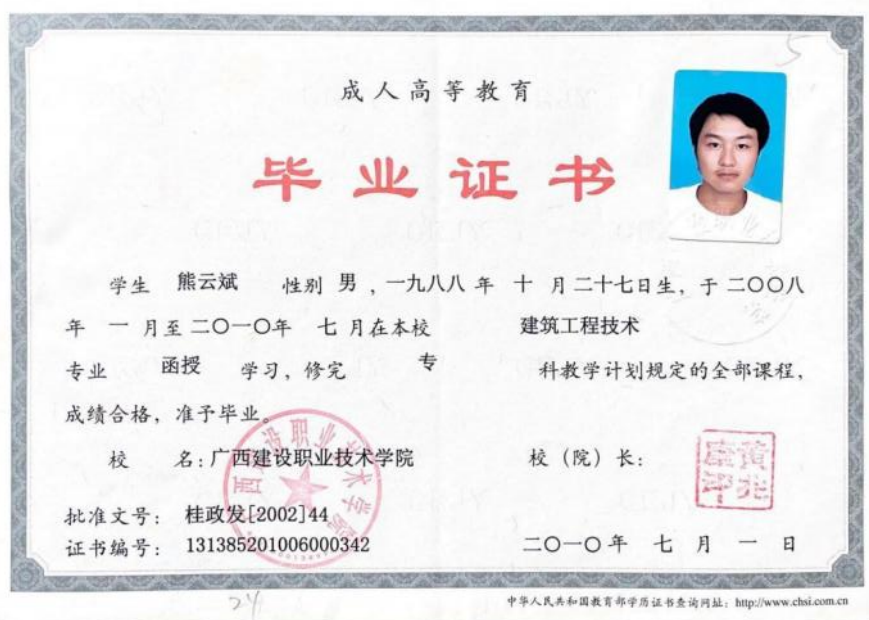 成人高等教育
毕业证书
学生 熊云斌 性别 男 ,一九八八 年 十 月二十七日生，于二〇〇八
年 一 月至二〇一〇年 七 月在本校 建筑工程技术
专业 函授 学习，修完 专 科教学计划规定的全部课程，
成绩合格，准予毕业。
校 名：广西建设职业技术学院 校（院）长：
批准文号： 桂政发[2002]44
证书编号： 131385201006000342 二〇一〇年 七 月 一 日
中华人民共和国教育部学历证书查询网址：http://www.chsi.com.cn
24